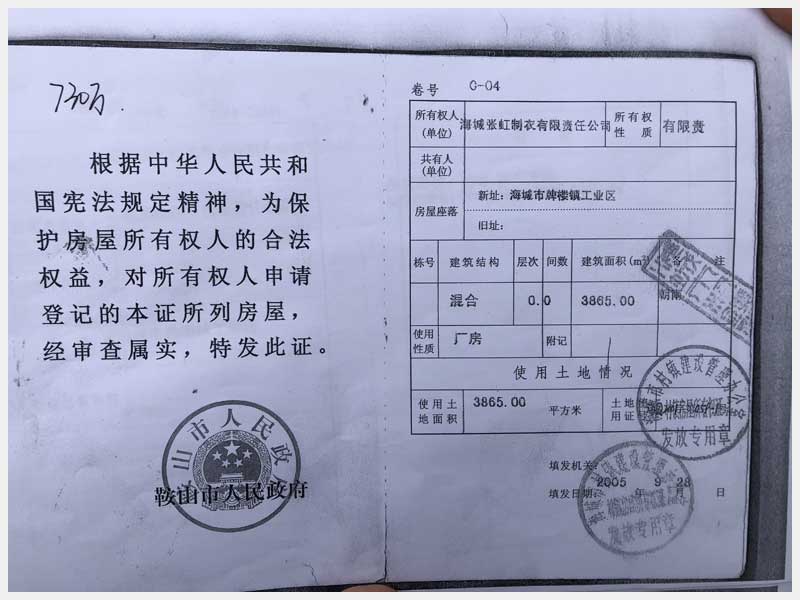 730万
根据中华人民共和
国宪法规定精神，为保
护房屋所有权人的合法
权益，对所有权人申请
登记的本证所列房屋，
经审查属实，特发此证。
山市人民政
鞍山市人民政府
卷号 C-04
所有权人(单位) 海城张虹制衣有限责任公司 所有权性质 有限责
共有人(单位)
房屋座落 新址：海城市牌楼镇工业区
旧址：
栋号 建筑结构 层次 间数 建筑面积(m²) 备注
混合 0.0 3865.00 朝南
使用性质 厂房 附记
使用土地情况
使用土地面积 3865.00 平方米 土地 用证
村镇建设管理办公室
发放专用章
填发机关：
填发日期： 2005 年 9 月 28 日
发放专用章